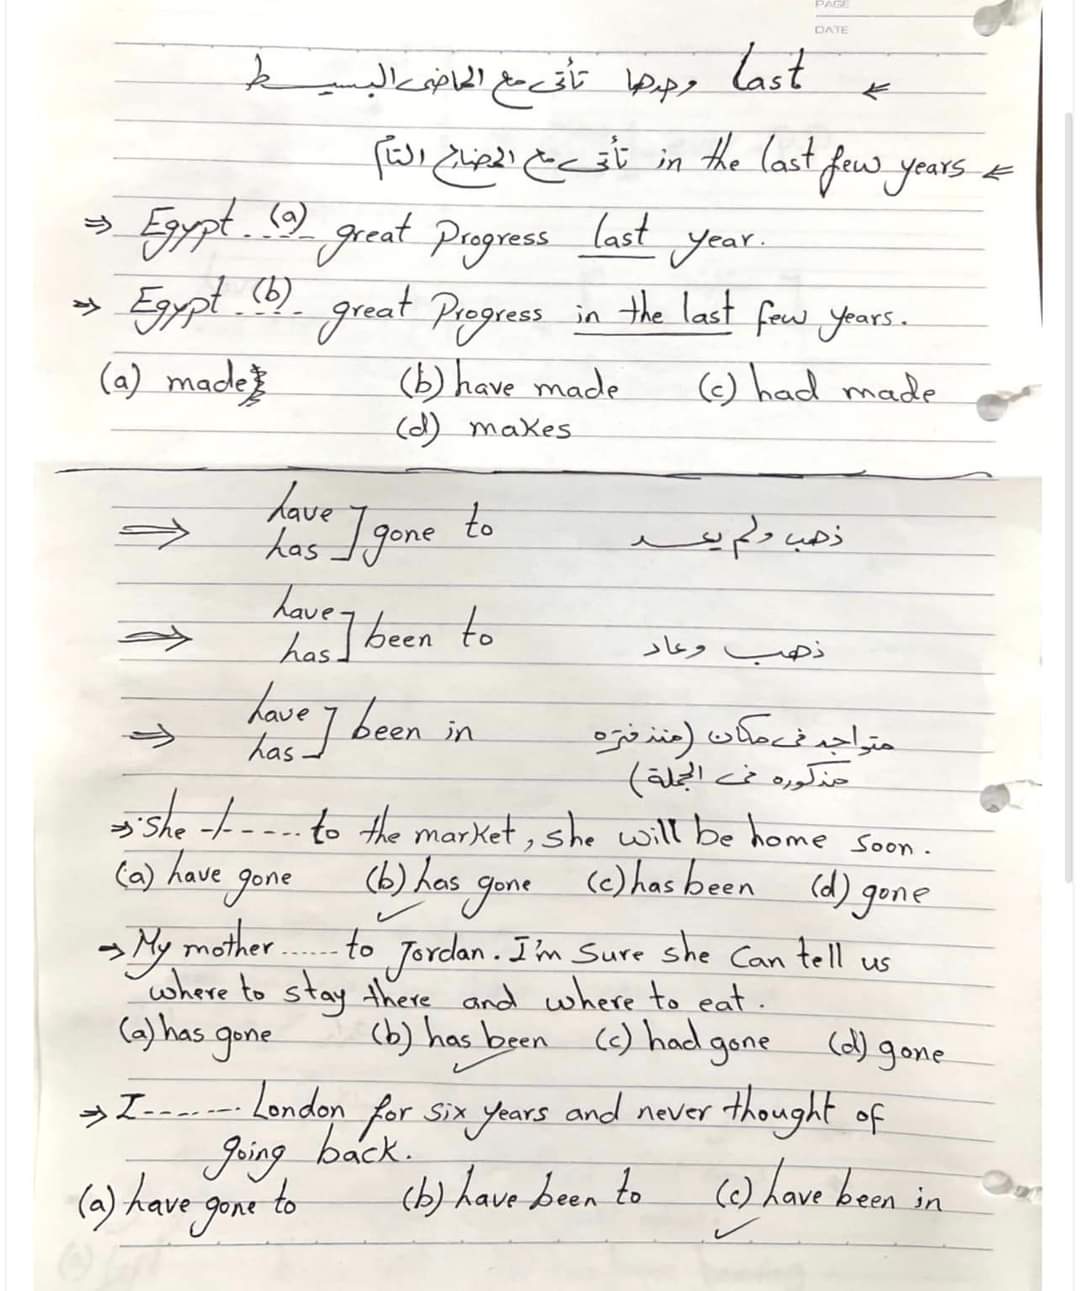 PAGE
DATE
last وحدها تأتى مع الماضى البسيط
in the last few years تأتى مع المضارع التام
⇒ Egypt (a) great Progress last year.
⇒ Egypt (b) great Progress in the last few years.
(a) made (b) have made (c) had made
(d) makes
⇒ have has ] gone to ذهب ولم يعد
⇒ have has ] been to ذهب وعاد
⇒ have has ] been in متواجد فى مكان (منذ فتره
مذكوره فى الجملة)
⇒ She ...... to the market, she will be home soon.
(a) have gone (b) has gone (c) has been (d) gone
→ My mother ...... to Jordan. I'm Sure she Can tell us
where to stay there and where to eat.
(a) has gone (b) has been (c) had gone (d) gone
⇒ I ------- London for six years and never thought of
going back.
(a) have gone to (b) have been to (c) have been in